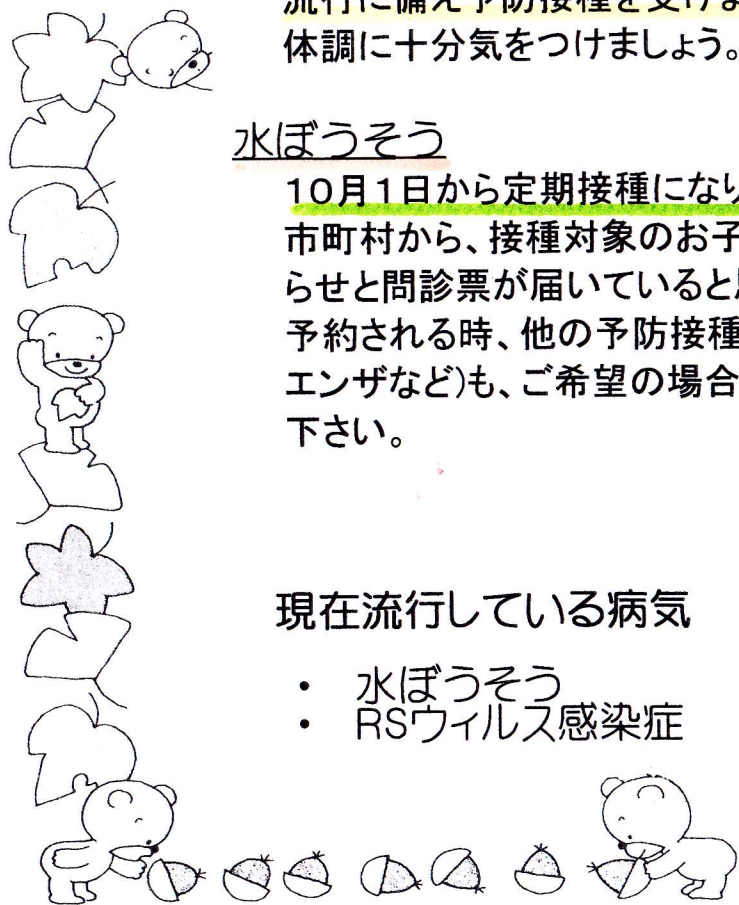 流行に備え予防接種を受けま
体調に十分気をつけましょう。
水ぼうそう
10月1日から定期接種になり
市町村から、接種対象のお子
らせと問診票が届いていると
予約される時、他の予防接種
エンザなど)も、ご希望の場合
下さい。
現在流行している病気
・ 水ぼうそう
・ RSウィルス感染症